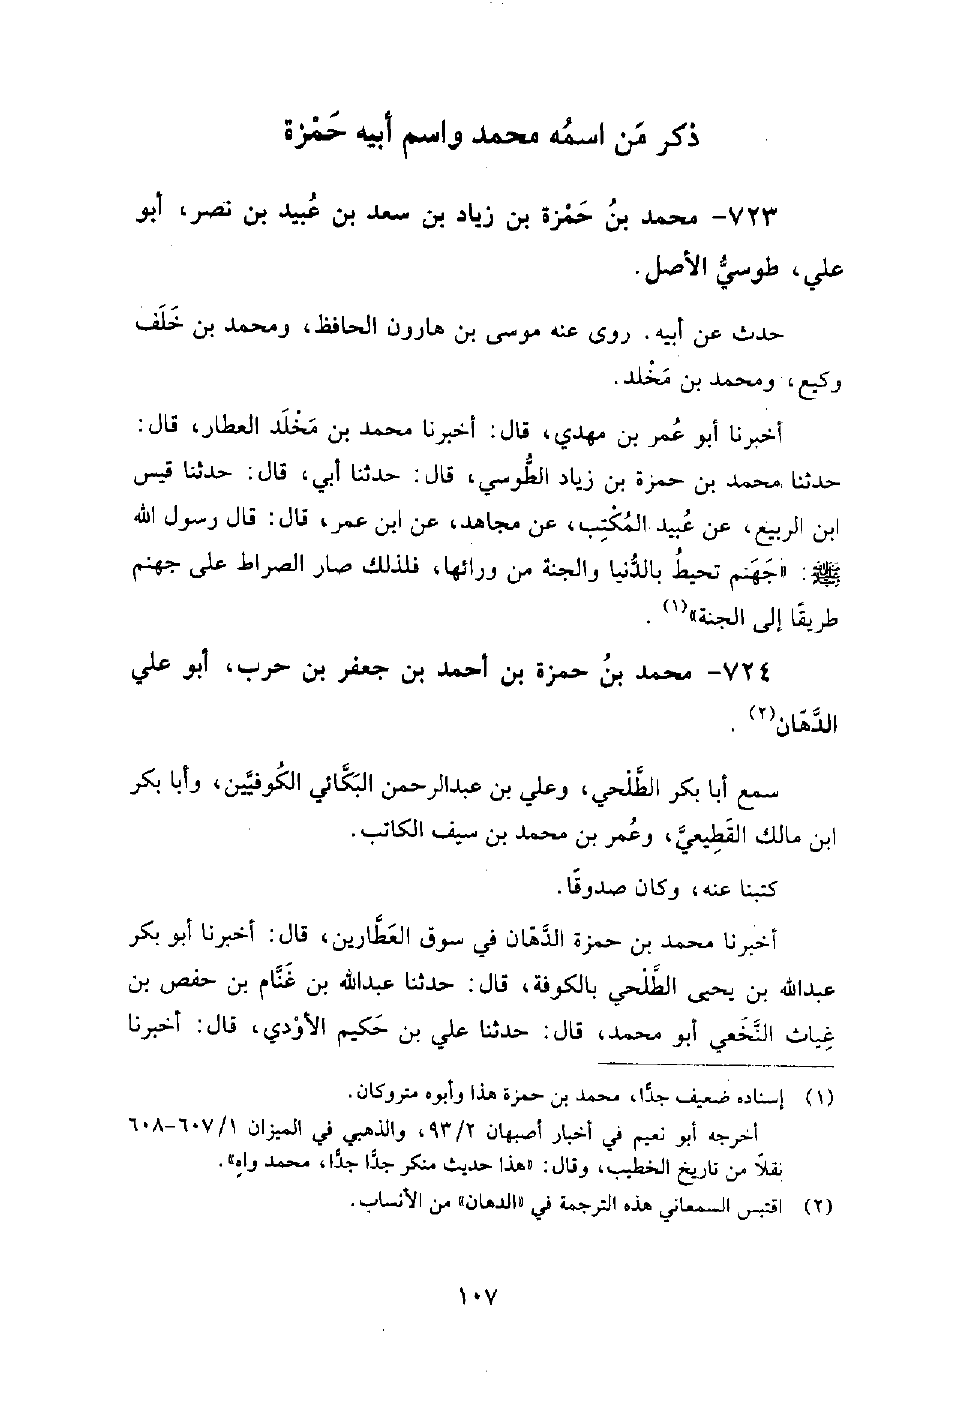 ذكر مَن اسمُه محمد واسم أبيه حَمْزة
٧٢٣- محمد بنُ حَمْزة بن زياد بن سعد بن عُبيد بن نصر، أبو
علي، طوسيُّ الأصل.
حدث عن أبيه. روى عنه موسى بن هارون الحافظ، ومحمد بن خَلَف
وكيع، ومحمد بن مَخْلد.
أخبرنا أبو عُمر بن مهدي، قال: أخبرنا محمد بن مَخْلَد العطار، قال:
حدثنا محمد بن حمزة بن زياد الطُّوسي، قال: حدثنا أبي، قال: حدثنا قيس
ابن الربيع، عن عُبيد المُكْتِب، عن مجاهد، عن ابن عمر، قال: قال رسول الله
ﷺ: «جَهَنم تحيطُ بالدُّنيا والجنة من ورائها، فلذلك صار الصراط على جهنم
طريقًا إلى الجنة»(١).
٧٢٤- محمد بنُ حمزة بن أحمد بن جعفر بن حرب، أبو علي
الدَّهّان(٢).
سمع أبا بكر الطَّلْحي، وعلي بن عبدالرحمن البَكَّائي الكُوفيَّين، وأبا بكر
ابن مالك القَطِيعيَّ، وعُمر بن محمد بن سيف الكاتب.
كتبنا عنه، وكان صدوقًا.
أخبرنا محمد بن حمزة الدَّهّان في سوق العَطَّارين، قال: أخبرنا أبو بكر
عبدالله بن يحيى الطَّلْحي بالكوفة، قال: حدثنا عبدالله بن غَنَّام بن حفص بن
غِياث النَّخَعي أبو محمد، قال: حدثنا علي بن حَكيم الأوْدي، قال: أخبرنا
(١) إسناده ضعيف جدًّا، محمد بن حمزة هذا وأبوه متروكان.
أخرجه أبو نعيم في أخبار أصبهان ٢/ ٩٣، والذهبي في الميزان ١/ ٦٠٧-٦٠٨
نقلًا من تاريخ الخطيب، وقال: «هذا حديث منكر جدًّا جدًّا، محمد واهٍ».
(٢) اقتبس السمعاني هذه الترجمة في «الدهان» من الأنساب.
١٠٧